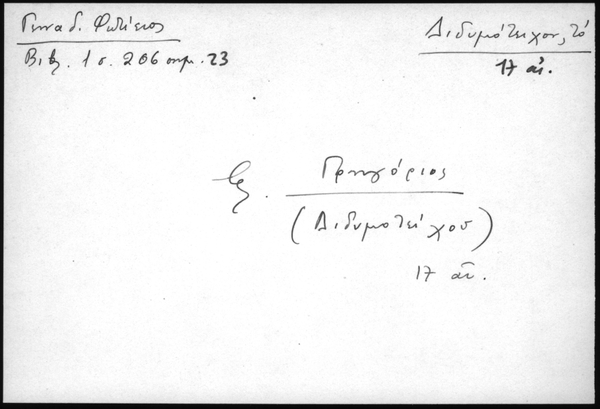 Γεναδ. Φωτίειος
Βιβ. 1 σ. 206 σημ. 23
Διδυμότειχον, τό
17 αἰ.
Γρηγόριος
(Διδυμοτείχου)
17 αἰ.